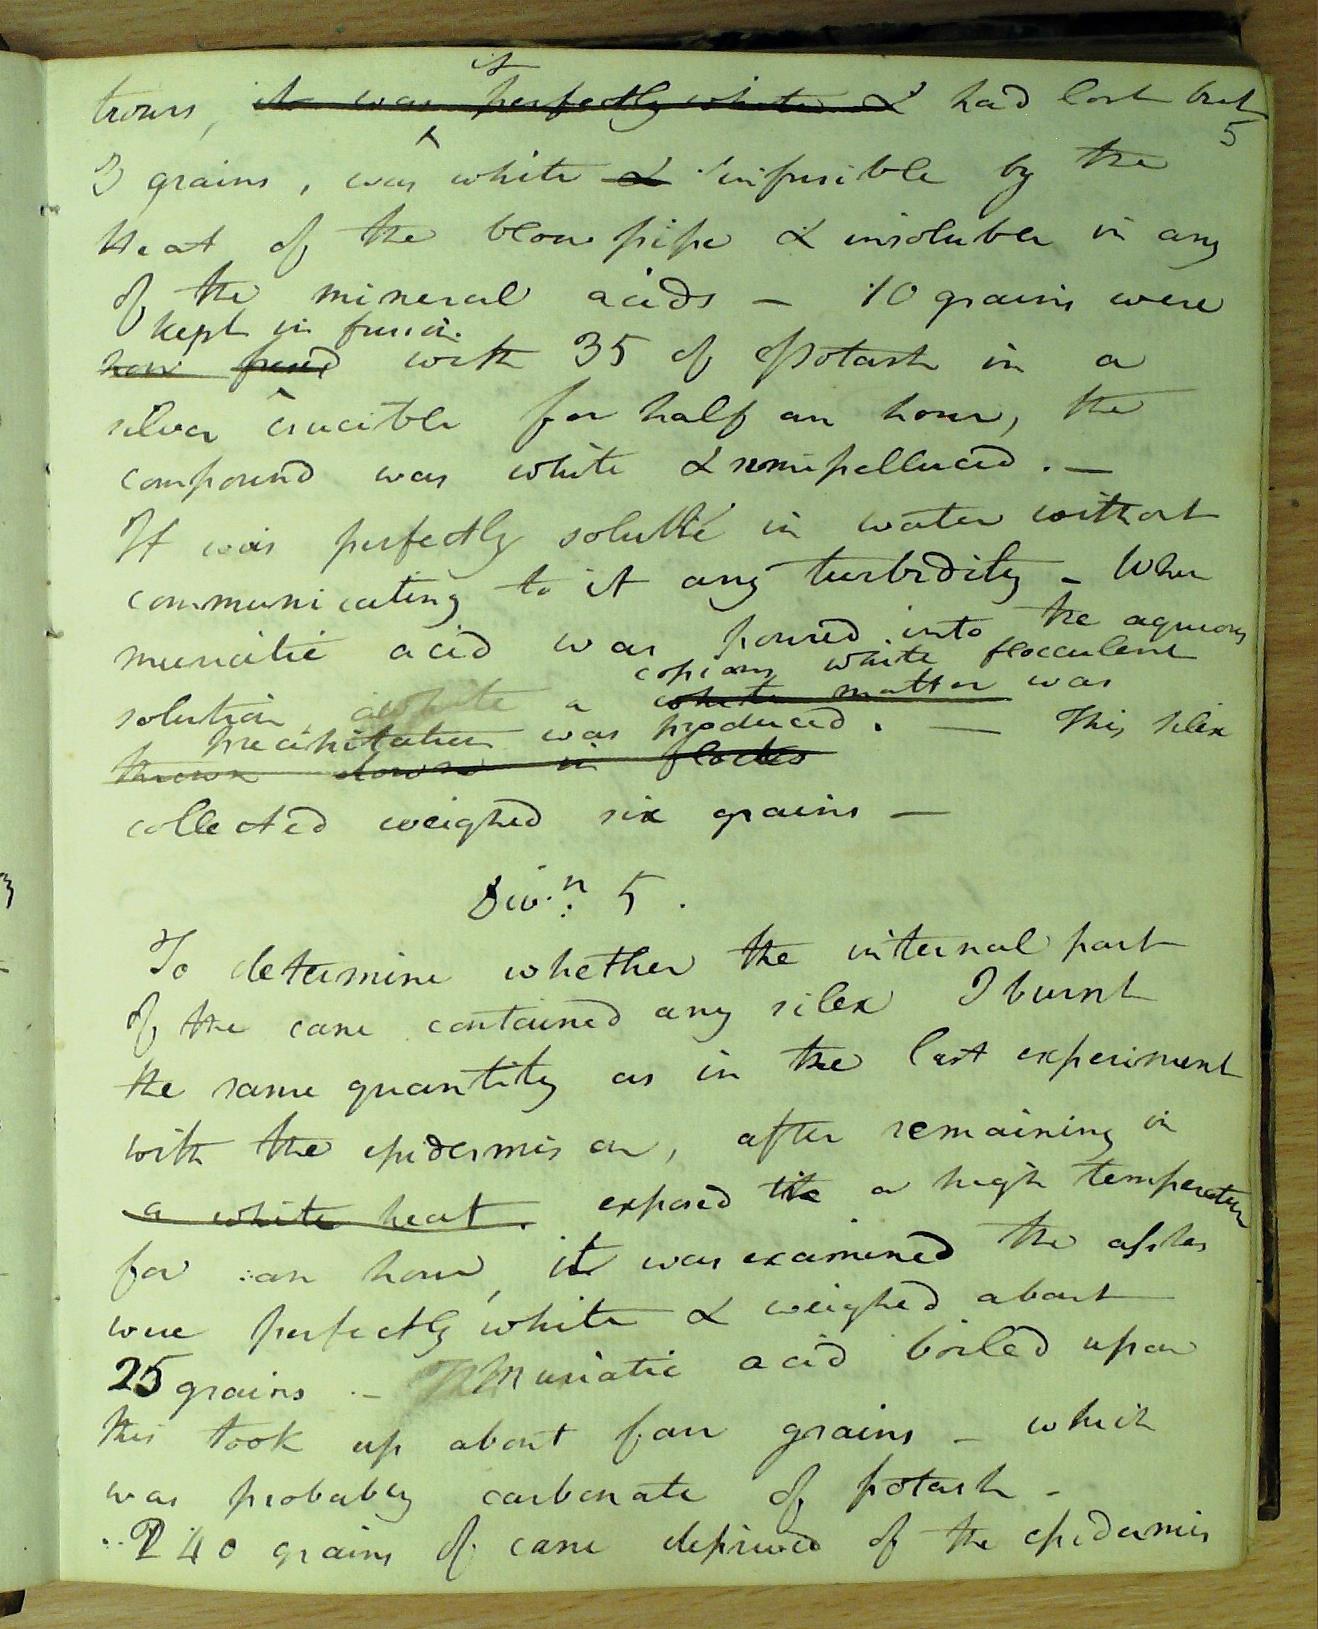 it
trours, it was perfectly white & had lost but
5
3 grains, was white & infusible by the
Heat of the blow pipe & insoluble in any
of the mineral acids – 10 grains were
kept in fusion
now fused with 35 of Potash in a
silver crucible for half an hour, the
compound was white & semipellucid. –
It was perfectly soluble in water without
communicating to it any turbidity – When
muriatic acid was poured into the aqueous
copious white flocculent
solution, a white a white matter was
precipitation was produced. — This silex
thrown down in flocks
collected weighed six grains –
Div.n 5.
To determine whether the internal part
of the cane contained any silex I burnt
the same quantity as in the last experiment
with the epidermis on, after remaining in
a white heat. exposed to a high temperature
for an hour, it was examined the ashes
were perfectly white & weighed about
25 grains – Muriatic acid boiled upon
this took up about four grains – which
was probably carbonate of potash –
240 grains of cane deprived of the epidermis